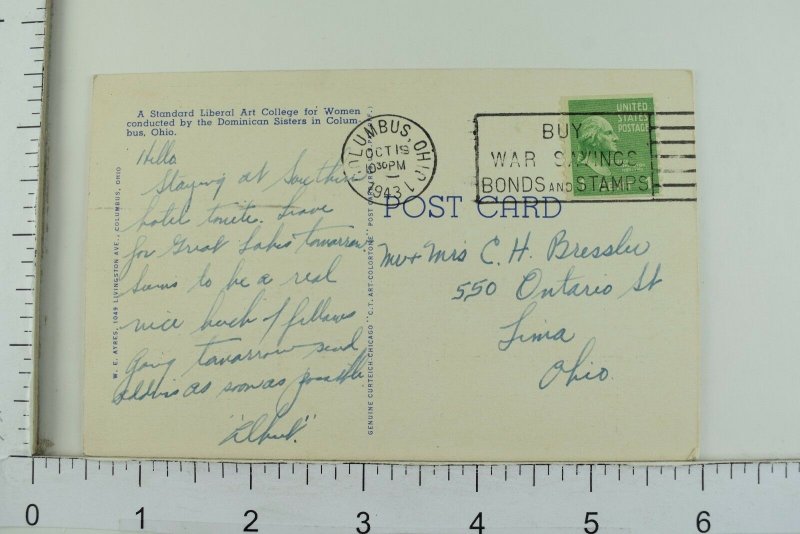 A Standard Liberal Art College for Women
conducted by the Dominican Sisters in Colum-
bus, Ohio.
Hello
Staying at Southern
hotel tonite. Leave
for Great Lakes tomorrow
Seems to be a real
nice bunch of fellows
Going tomorrow send
address as soon as possible
"Elbert"
W. E. AYRES, 1049 LIVINGSTON AVE., COLUMBUS, OHIO
GENUINE CURTEICH-CHICAGO "C.T. ART-COLORTONE" POST CARD
COLUMBUS, OHIO
OCT 19
6 30 PM
1943
1
BUY
WAR SAVINGS
BONDS AND STAMPS
UNITED
STATES
POSTAGE
POST CARD
Mr + Mrs C. H. Bressler
550 Ontario St
Lima
Ohio.
0 1 2 3 4 5 6
0
1
2
3